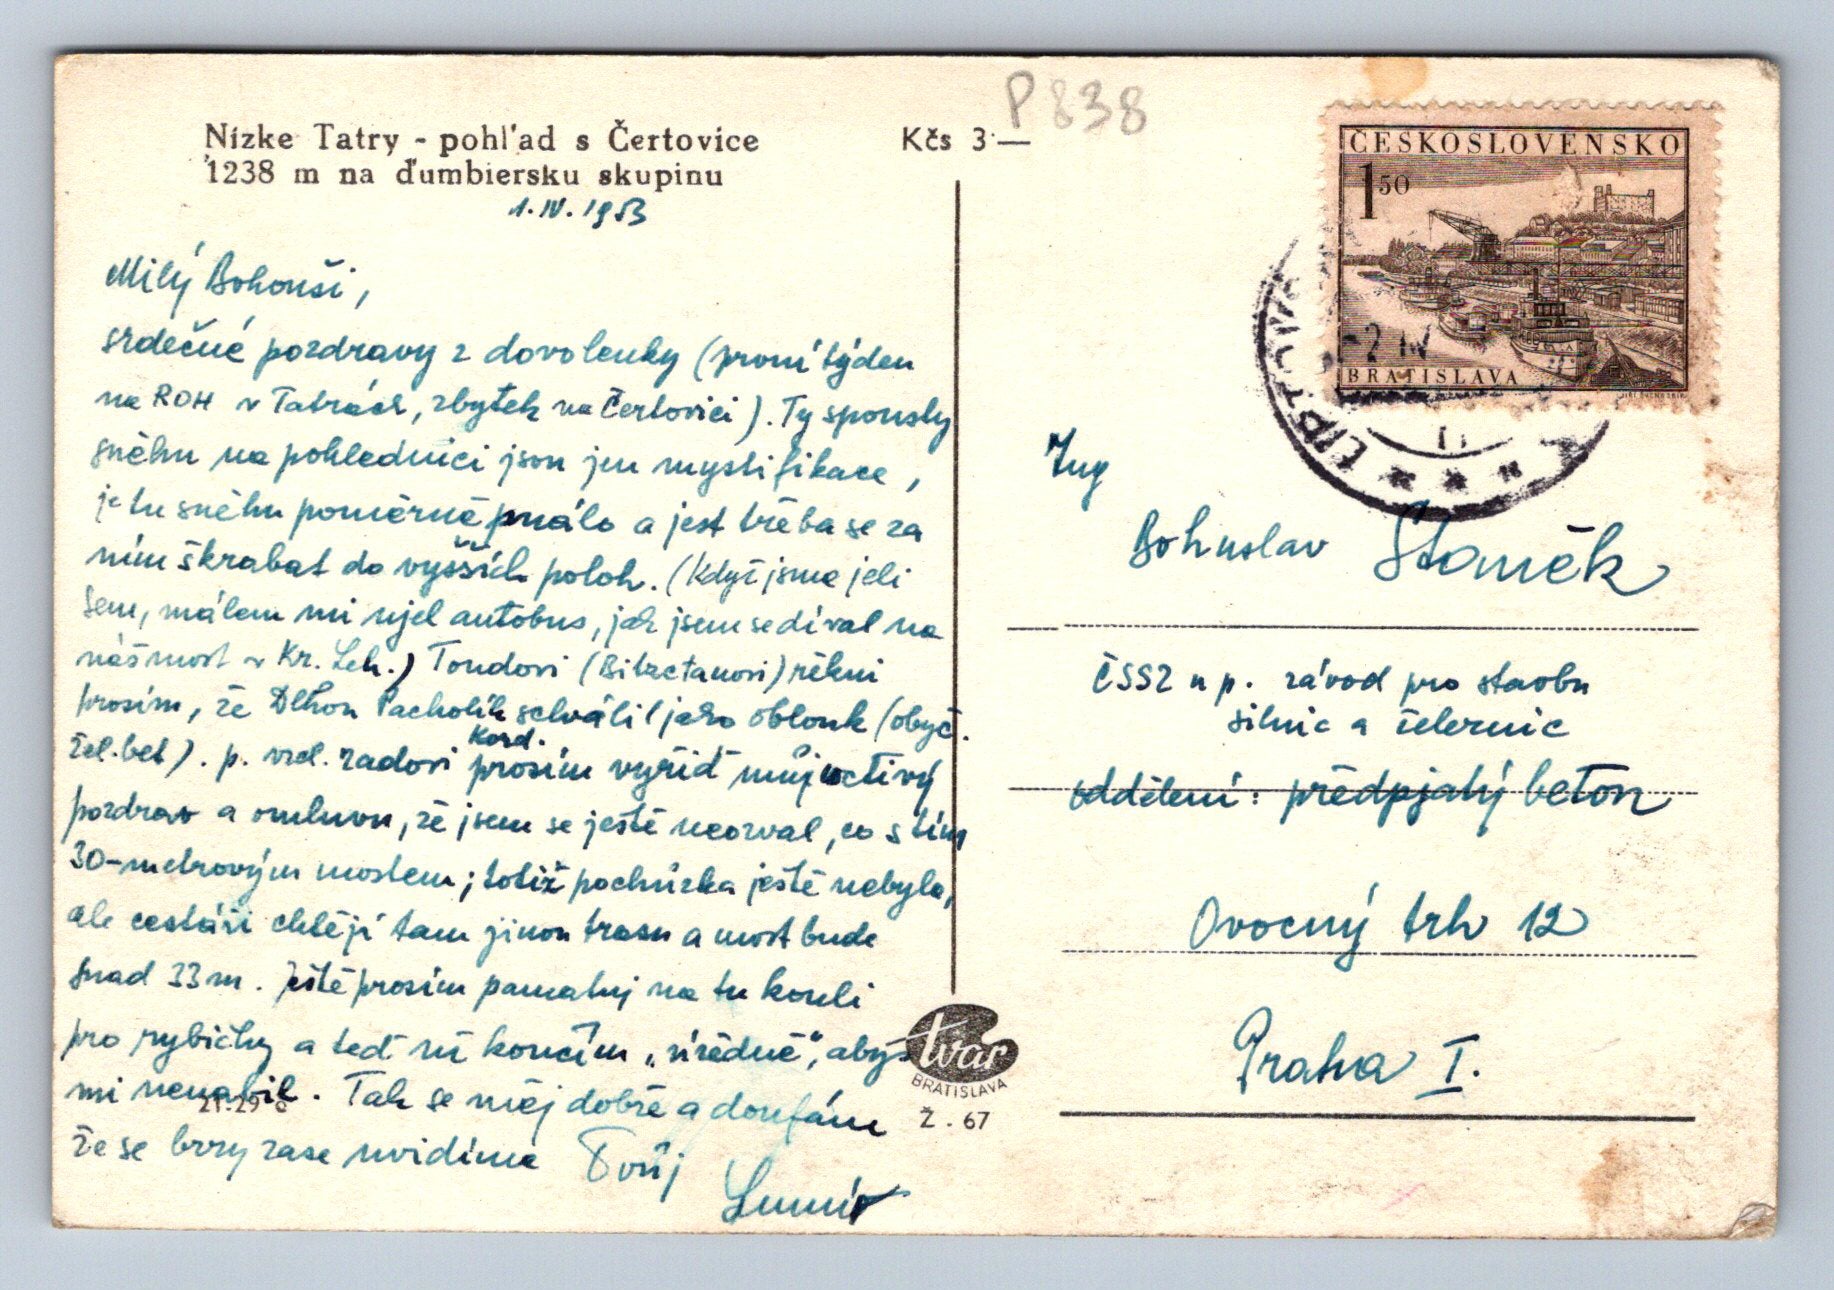 Nízke Tatry - pohľad s Čertovice
1238 m na ďumbiersku skupinu
Kčs 3·—
P 838
1.IV.1953
Milý Bohouši,
srdečné pozdravy z dovolenky (první týden
na ROH v Tatrách, zbytek na Čertovici). Ty spousty
sněhu na pohlednici jsou jen mystifikace,
je tu sněhu poměrně málo a jest třeba se za
ním škrabat do vyšších poloh. (Když jsme jeli
sem, málem mi ujel autobus, jak jsem se díval na
náš most v Kr. Leh.) Tondovi řekni
prosím, že Dlhon Pacholík schválil jako oblouk (obyč.
žel. bet). p. vrd. radovi prosím vyřiď můj uctivý
Kord.
pozdrav a omluvu, že jsem se ještě neozval, co s tím
30-metrovým mostem; totiž pochůzka ještě nebyla,
ale cestáři chtějí tam jinou trasu a most bude
snad 33m. Ještě prosím pamatuj na tu kouli
pro rybičky a teď už končím „
mi nenabil. Tak se měj dobře a doufám
že se brzy zase uvidíme Tvůj
Lumír
tvar
BRATISLAVA
Ž. 67
ČESKOSLOVENSKO
1 50
BRATISLAVA
LIPTOV
-2 IV
Ing
Bohuslav Staněk
ČSSZ n p. závod pro stavbu
silnic a železnic
oddělení: předpjatý beton
Ovocný trh 12
Praha I.